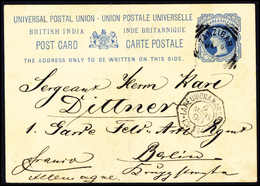 UNIVERSAL POSTAL UNION - UNION POSTALE UNIVERSELLE
BRITISH INDIA INDE BRITANNIQUE
POST CARD CARTE POSTALE
THE ADDRESS ONLY TO BE WRITTEN ON THIS SIDE.
Sergeant Herrn Karl
Dittner
1. Garde Feld-Art. Regmt
Berlin
Allemagne